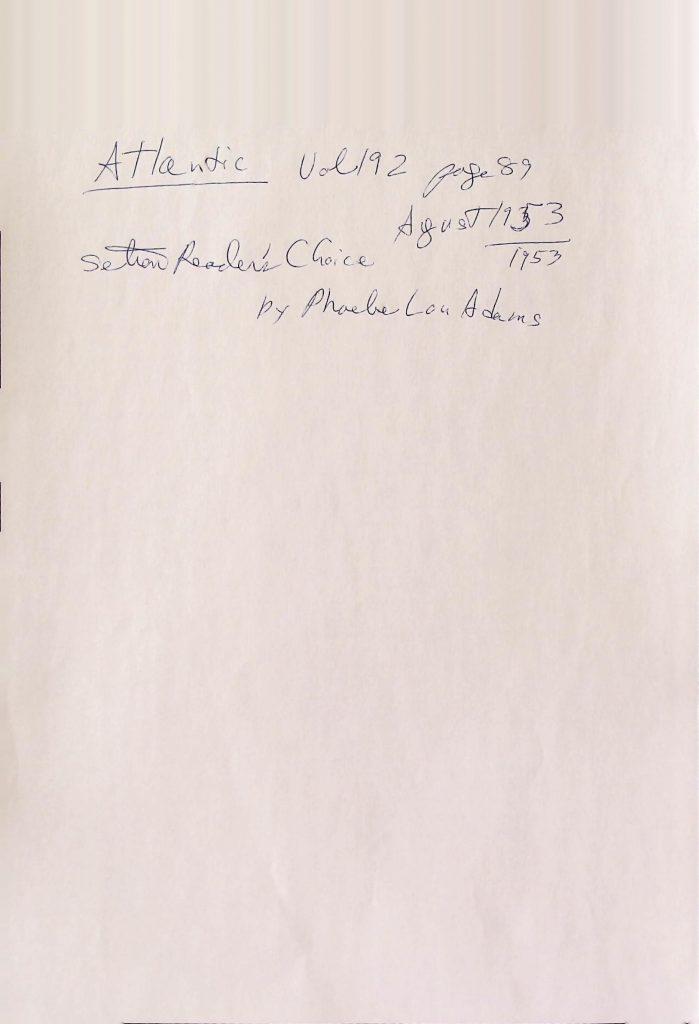 Atlantic Vol 192 page 89
Agust 1953
1953
Section Reader's Choice
by Phoebe Lou Adams